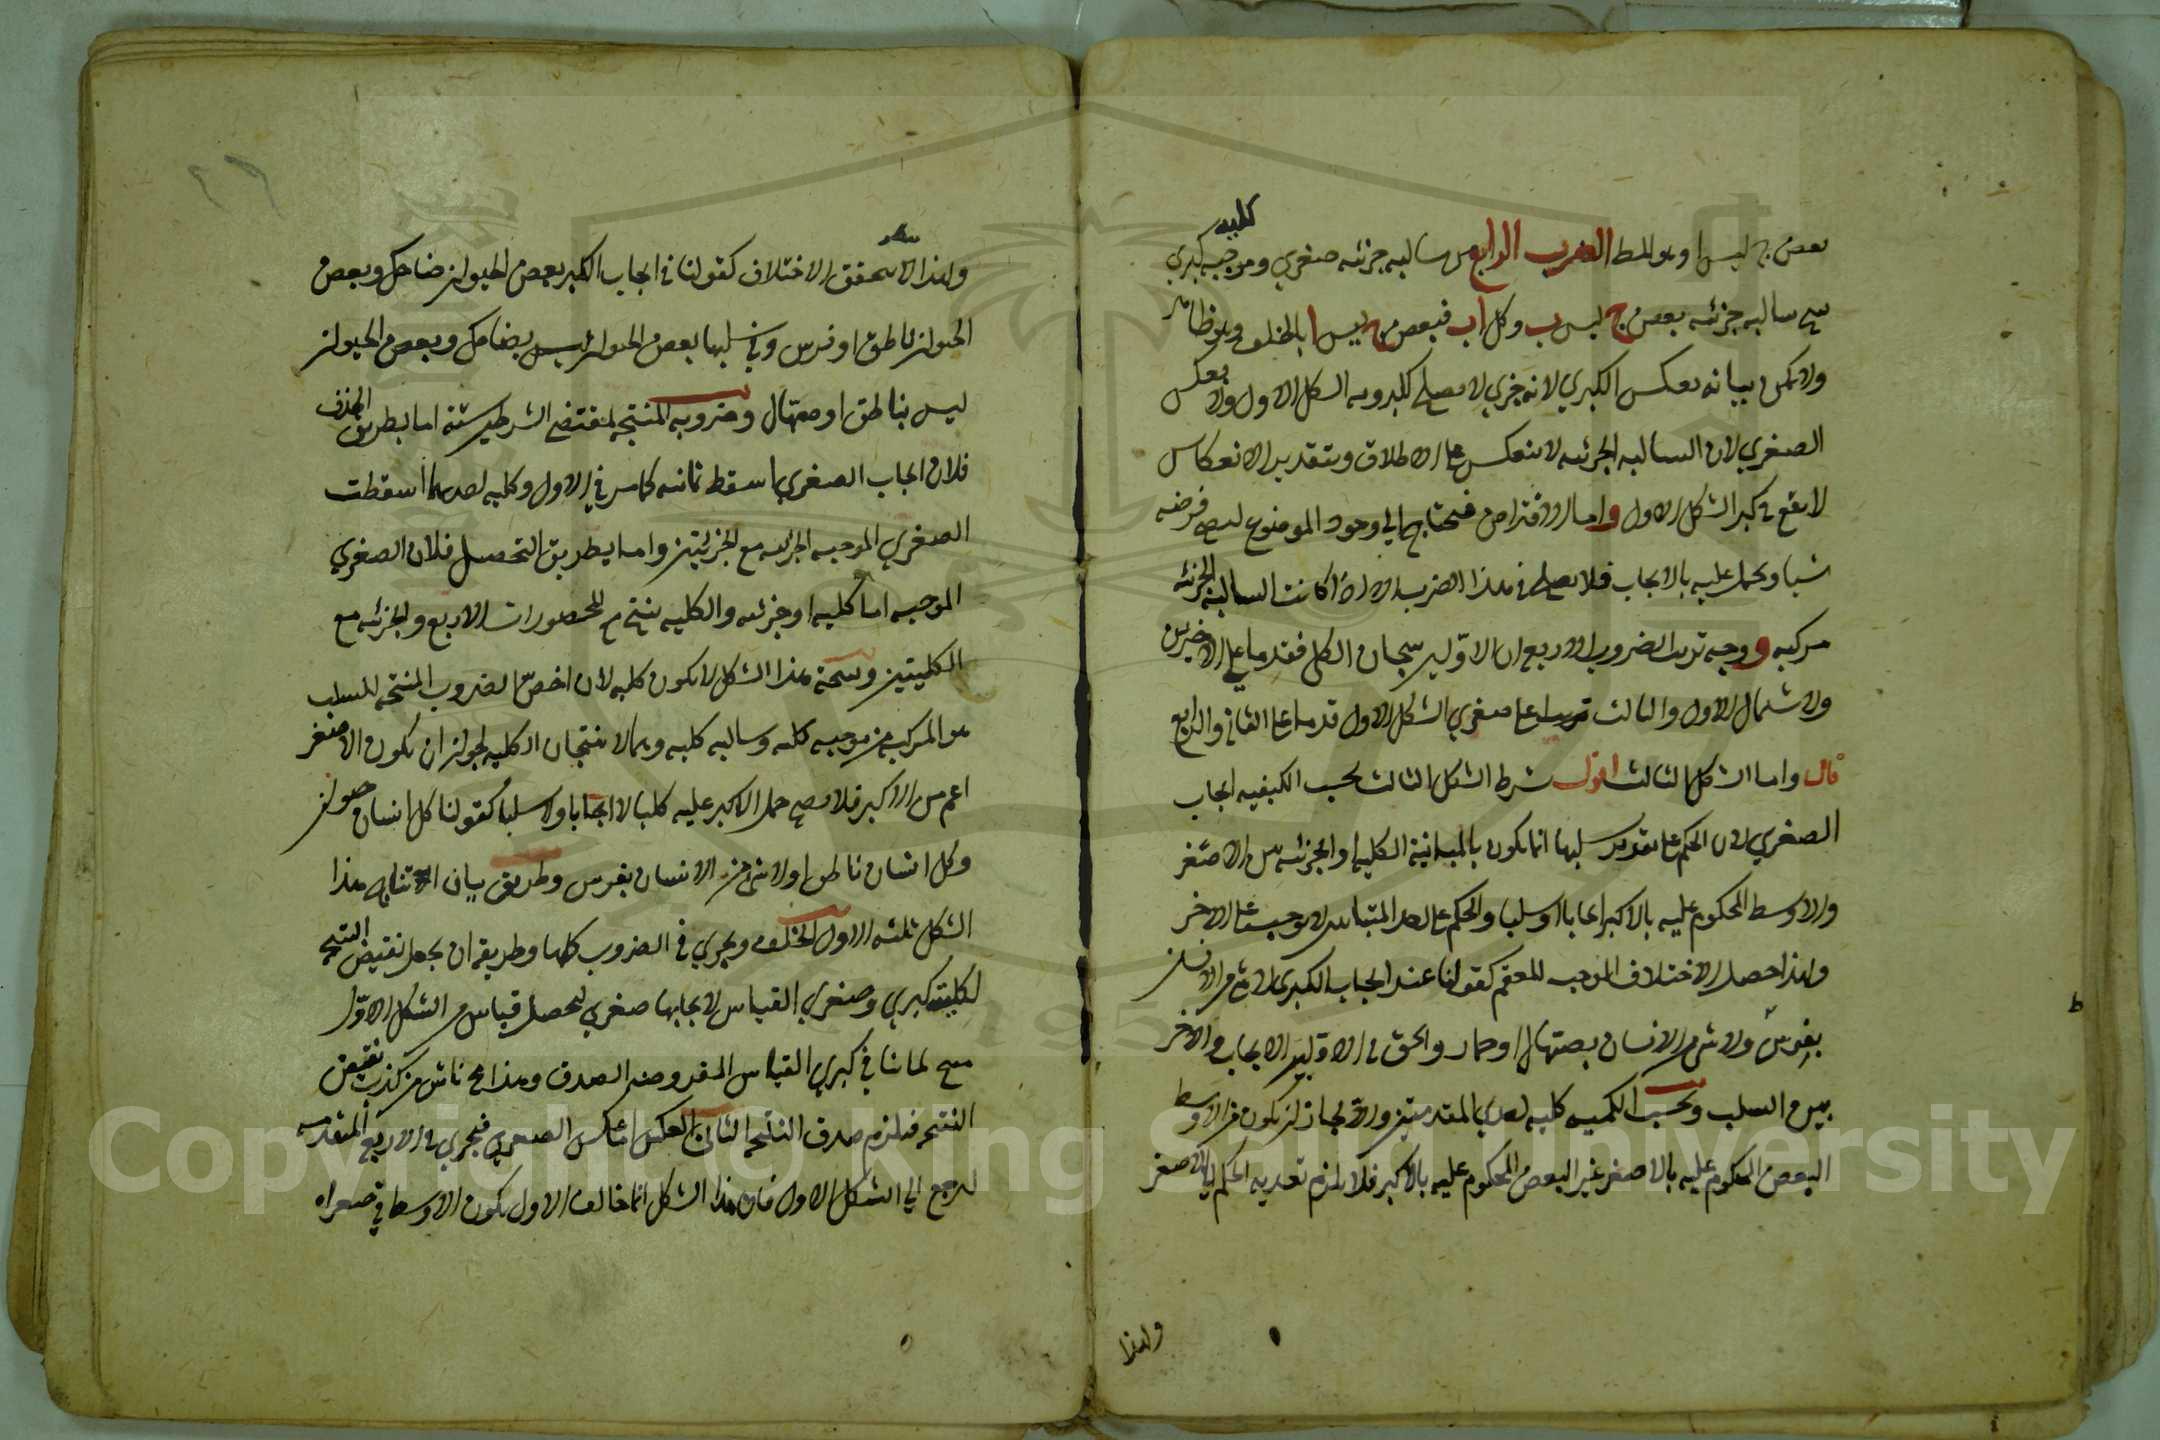 بعض ج ليس ا وهو المط الضرب الرابع من سالبه جزئيه صغري وموجبه كليه كبري
سالبه جزئيه بعض ج ليس ب وكل ا ب فبعض ج ليس ا بالخلف وهو ظاهر
ولا يمكن بيانه بعكس الكبري لانه جزي لا يصلح لكبرويه الشكل الاول ولا بعكس
الصغري لان السالبه الجزئيه لا تنعكس علي الاطلاق وبتقدير الانعكاس
لا تقع في كبر الشكل الاول واما الافتراض فيحتاج الي وجود الموضوع ليصح فرضه
شيا ويحمل عليه بالايجاب فلا يصلح في هذا الضرب الا اذا كانت السالبه الجزئيه
مركبه ووجه ترتيب الضروب الاربع ان الاولين ينتجان الكلي فقدما علي الاخيرين
ولاشتمال الاول والثالث علي صغري الشكل الاول قدما علي الثاني والرابع
قال واما الشكل الثالث اقول شرط الشكل الثالث بحسب الكيفيه ايجاب
الصغري لان الحكم علي تقدير سلبها انما يكون بالمباينة الكليه او الجزئيه بين الاصغر
والاوسط المحكوم عليه بالاكبر ايجابا او سلبا والحكم علي احد المتباينين لا يوجب علي الاخر
ولهذا حصل الاختلاف الموجب للعقم كقولنا عند ايجاب الكبري لا شي من الانسان
بفرس ولا شي من الانسان بصهال او حمار والحق في الاولين الايجاب وفي الاخر
بين السلب وبحسب الكميه كليه احدي المقدمتين والا لجاز ان يكون من الاوسط
البعض المحكوم عليه بالاصغر غير البعض المحكوم عليه بالاكبر فلا يلزم تعديه الحكم الي الاصغر
ولهذا
٢٦
ولهذا لا يتحقق الاختلاف كقولنا في ايجاب الكبر بعض الحيوان ضاحك وبعض
الحيوان ناطق او فرس وفي سلبها بعض الحيوان ليس بضاحك وبعض الحيوان
ليس بناطق او صهال وضروبه المنتجه بمقتضي الشرطين ستة اما بطريق الحذف
فلان ايجاب الصغري اسقط ثمانيه كما مر في الاول وكليه احديهما اسقطت
الصغري الموجبه الجزئيه مع الجزئيتين واما بطريق التحصيل فلان الصغري
الموجبه اما كليه او جزئيه والكليه تنتج مع المحصورات الاربع والجزئيه مع
الكليتين ونتيجة هذا الشكل لا يكون كليه لان اخص الضروب المنتجه للسلب
هو المركب من موجبه كليه وسالبه كليه وهما لا ينتجان الا كليه لجواز ان يكون الاصغر
اعم من الاكبر فلا يصح حمل الاكبر عليه كليا لا ايجابا ولا سلبا كقولنا كل انسان حيوان
وكل انسان ناطق او لا شي من الانسان بفرس وطريق بيان انتاج هذا
الشكل ثلثه الاول الخلف ويجري في الضروب كلها وطريقه ان يجعل نقيض النتيجه
لكليته كبري وصغري القياس لايجابها صغري ليحصل قياس من الشكل الاول
منتج لما ينافي كبري القياس المفروضه الصدق وهذا مح ناش من كذب نقيض
النتيجه فيلزم صدق النتيجه الثاني العكس اما عكس الصغري فيجري في الاربع المتقدمه
ليرجع الي الشكل الاول فان هذا الشكل انما خالف الاول بكون الاوسط في صغراه